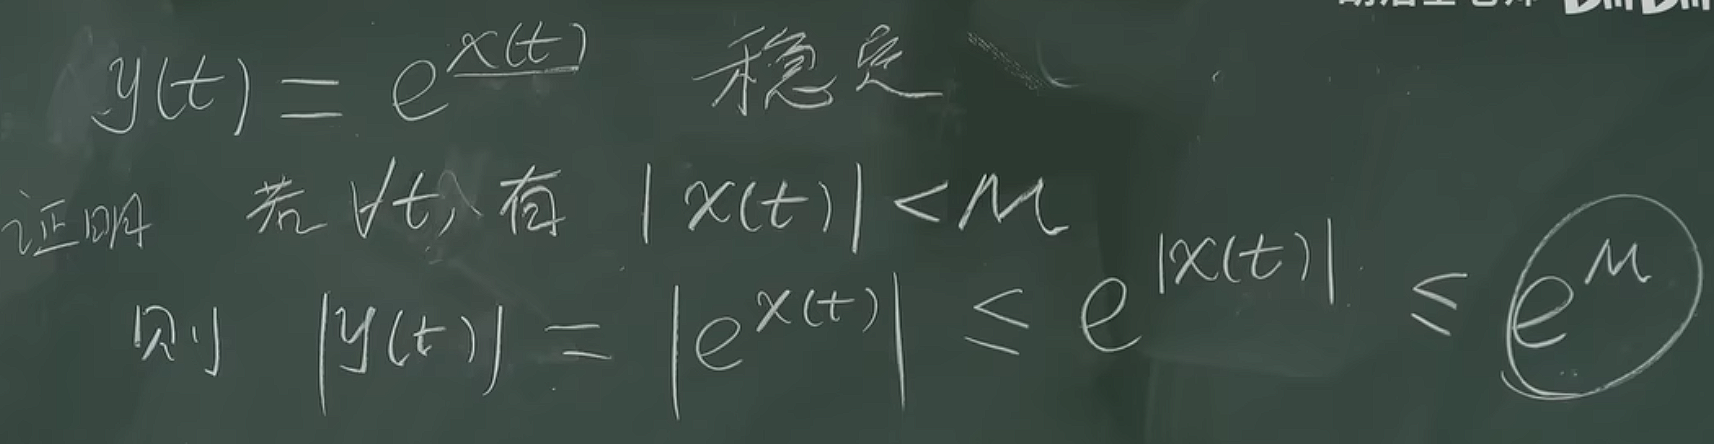 y(t) = e^{x(t)} 稳定
证明 若∀t, 有 |x(t)| < M
则 |y(t)| = |e^{x(t)}| ≤ e^{|x(t)|} ≤ e^M